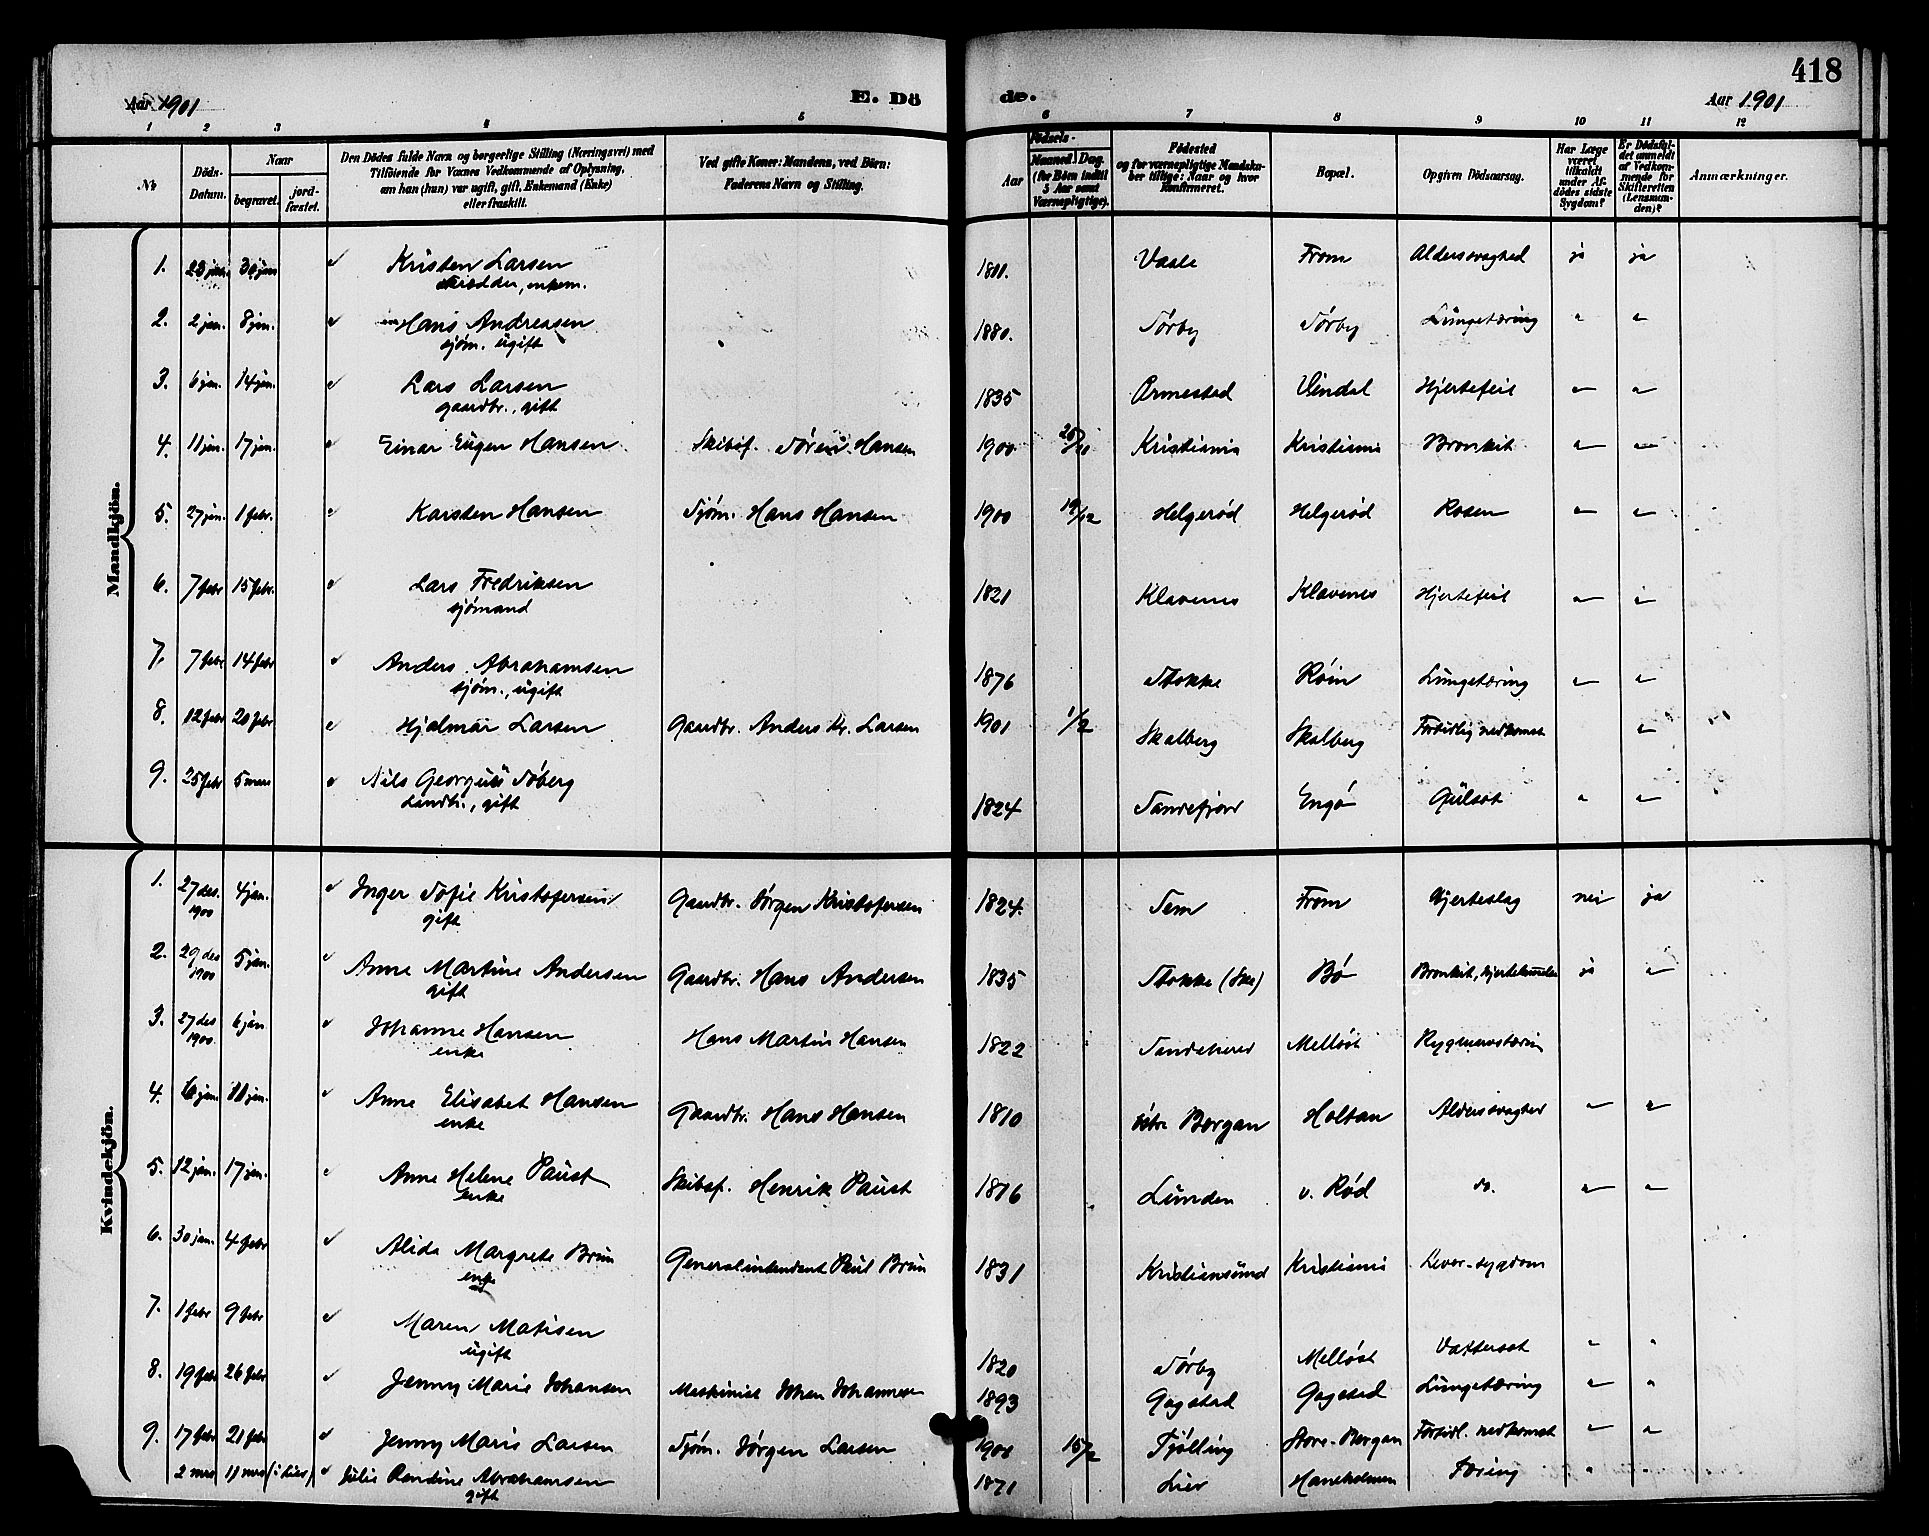 418
Aar 1901
E. Dö
de.
Aar 1901
1 2 3 4 5 6 7 8 9 10 11 12
No
Döds-Datum.
Naar
begravet.
jord-fæstet.
Den Dödes fulde Navn og borgerlige Stilling (Næringsvei) med
Tilföiende for Voxnes Vedkommende af Oplysning,
om han (hun) var ugift, gift, Enkemand (Enke)
eller fraskilt.
Ved gifte Koner: Mandens, ved Börn:
Faderens Navn og Stilling.
Aar
Födsels-
Maaned. Dag.
(for Börn indtil
5 Aar samt
Værnepligtige).
Födested
og for værnepligtige Mandska-
ber tillige: Naar og hvor
Konfirmeret.
Bopæl.
Opgiven Dödsaarsag.
Har Læge
været
tilkaldt
under Af-
dödes sidste
Sygdom?
Er Dödsfal-
det anmeldt
af Vedkom-
mende for
Skifteretten
(Lensman-
den)?
Anmærkninger.
Mandkjön.
1. 23 jan. 30 jan Kristen Larsen 1811. Vaale From Aldersvaghed ja ja
skrædder, enkem.
2. 2 jan. 8 jan. Hans Andreasen 1880. Sørby Sørby Lungetæring " "
sjøm. ugift
3. 6 jan. 14 jan. Lars Larsen 1835 Ormestad Vindal Hjertefeil " "
gaardbr., gift
4. 11 jan. 17 jan. Einar Eugen Hansen Skibsf. Søren Hansen 1900 Kristiania Kristiania Bronkit " "
5. 27 jan. 1 febr. Karsten Hansen Sjøm. Hans Hansen 1900 19/12 Helgerød Helgerød Rosen " "
6. 7 febr 15 febr. Lars Fredriksen 1821 Klavenes Klavenes Hjertefeil " "
sjømand
7. 7 febr 14 febr Anders Abrahamsen 1876 Stokke Røin Lungetæring " "
sjøm., ugift
8. 12 febr 20 febr Hjalmar Larsen Gaardbr. Anders Kr. Larsen 1901 1/2 Skalberg Skalberg Fortidlig nedkomst "
9. 25 febr 5 mars Nils Georgius Søberg 1824 Sandefjord Engø Gulsot " "
Landbr., gift
Kvindekjön.
1. 27 des. 1900 4 jan. Inger Sofie Kristofersen Gaardbr. Jørgen Kristofersen 1824. Sem From Hjerteslag nei ja
gift
2. 29 des 1900 5 jan. Anne Martine Andersen Gaardbr. Hans Andersen 1835 Stokke (Ske) Bø Bronkit, ja "
gift
3. 27 des 1900. 6 jan Johanne Hansen Hans Martin Hansen 1822 Sandeherred Melløst
enke
4. 6 jan. 11 jan. Anne Elisabet Hansen Gaardbr. Hans Hansen 1810 østre Bergan Holtan Aldersvaghed " "
enke
5. 12 jan. 17 jan. Anne Helene Paust Skibsf. Henrik Paust 1816 Lunden v. Rød do. " "
enke
6. 30 jan. 4 febr Alida Margrete Brun Generalintendant Paul Brun 1831 Kristiansund Kristiania Lever-sygdom
enke
7. 1 febr 9 febr Maren Matisen 1820 Sørby Melløst Vattersot " "
ugift
8. 19 febr 26 febr Jenny Marie Johansen Maskinist Johan Johannesen 1893 Gogstad Gogstad Lungetæring " "
9. 17 febr 21 febr Jenny Marie Larsen Sjøm. Jørgen Larsen Tjølling Store-Bergan Fortidl. nedkomst " "
2 mrs 11 mrs (i Lier) Julie Randine Abrahamsen 1871 Lier Haneholmen Tæring " "
gift